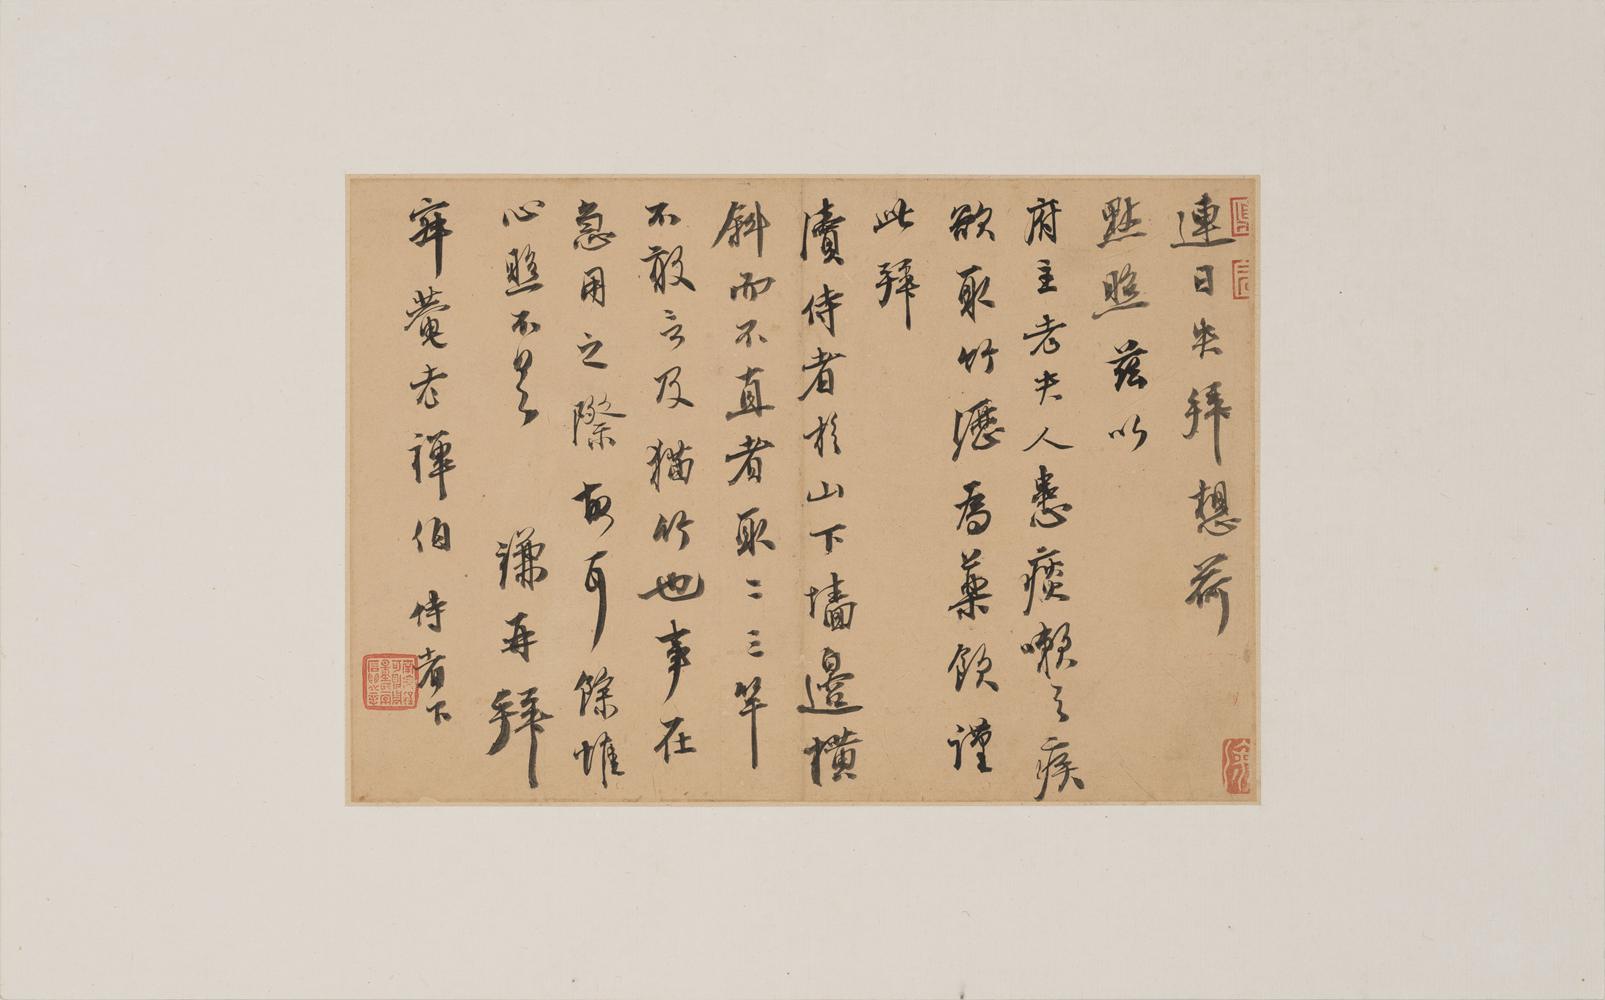 連日失拜想荷
點照茲以
府主老夫人患痰嗽之疾
欲取竹瀝為藥飲謹
此拜
瀆侍者於山下墻邊橫
斜而不直者取二三竿
不敢言及猫竹也事在
急用之際故耳餘惟
心照不畏 謙再拜
菴老禪伯侍者下